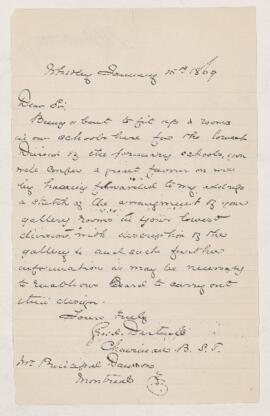 Whitby January 15th 1869
Dear Sir,
Being about to fit up a room
in our schools here for the lowest
Division of the primary schools, you
will confer a great favour on me
by having forwarded to my address
a sketch of the arrangement of your
gallery rooms in your lowest
division with description of the
gallery & and such further
information as may be necessary
to enable our Board to carry out
this design.
Yours truly
Chairman B. S. T.
Mr Principal Dawson
Montreal